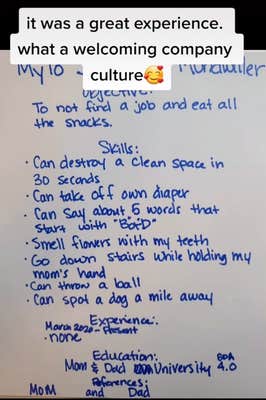 it was a great experience.
what a welcoming company
culture🥰
Mylo
Objective:
To not find a job and eat all
the snacks.
Skills:
· Can destroy a clean space in
30 seconds
· Can take off own diaper
· Can say about 5 words that
start with "B or D"
· Smell flowers with my teeth
· Go down stairs while holding my
mom's hand
· Can throw a ball
· Can spot a dog a mile away
Experience:
March 2020 - Present
· none
Education:
Mom & Dad University GPA 4.0
References:
Mom and Dad